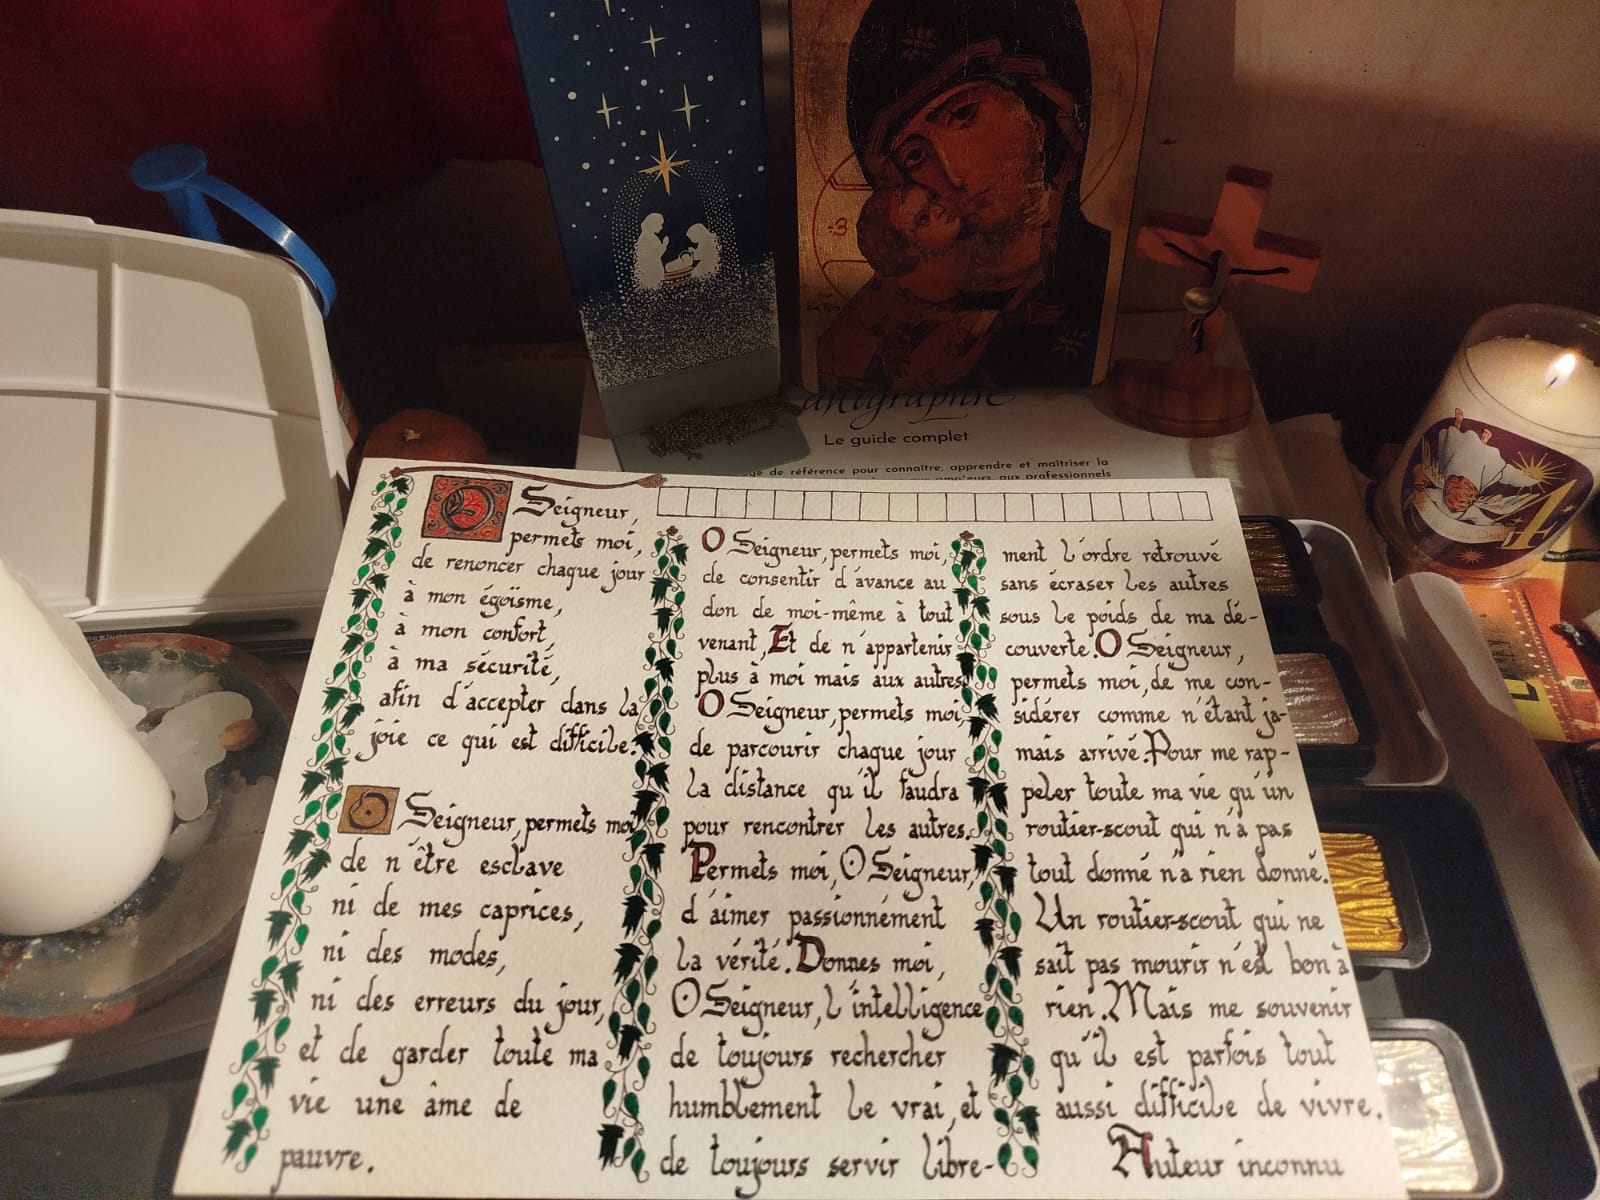 Le guide complet
de référence pour connaître, apprendre et maîtriser la
aux professionnels
O Seigneur,
permets moi,
de renoncer chaque jour
à mon égoïsme,
à mon confort,
à ma sécurité,
afin d'accepter dans la
joie ce qui est difficile.
O Seigneur, permets moi
de n'être esclave
ni de mes caprices,
ni des modes,
ni des erreurs du jour,
et de garder toute ma
vie une âme de
pauvre.
O Seigneur, permets moi,
de consentir d'avance au
don de moi-même à tout
venant, Et de n'appartenir
plus à moi mais aux autres.
O Seigneur, permets moi,
de parcourir chaque jour
la distance qu'il faudra
pour rencontrer les autres.
Permets moi, O Seigneur,
d'aimer passionnément
la vérité. Donnes moi,
O Seigneur, l'intelligence
de toujours rechercher
humblement le vrai, et
de toujours servir libre-
ment l'ordre retrouvé
sans écraser les autres
sous le poids de ma dé-
couverte. O Seigneur,
permets moi, de me con-
sidérer comme n'étant ja-
mais arrivé. Pour me rap-
peler toute ma vie qu'un
routier-scout qui n'a pas
tout donné n'a rien donné.
Un routier-scout qui ne
sait pas mourir n'est bon à
rien. Mais me souvenir
qu'il est parfois tout
aussi difficile de vivre.
Auteur inconnu
4